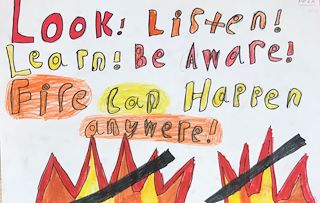 Look! Listen!
Learn! Be Aware!
Fire can Happen
anywere!